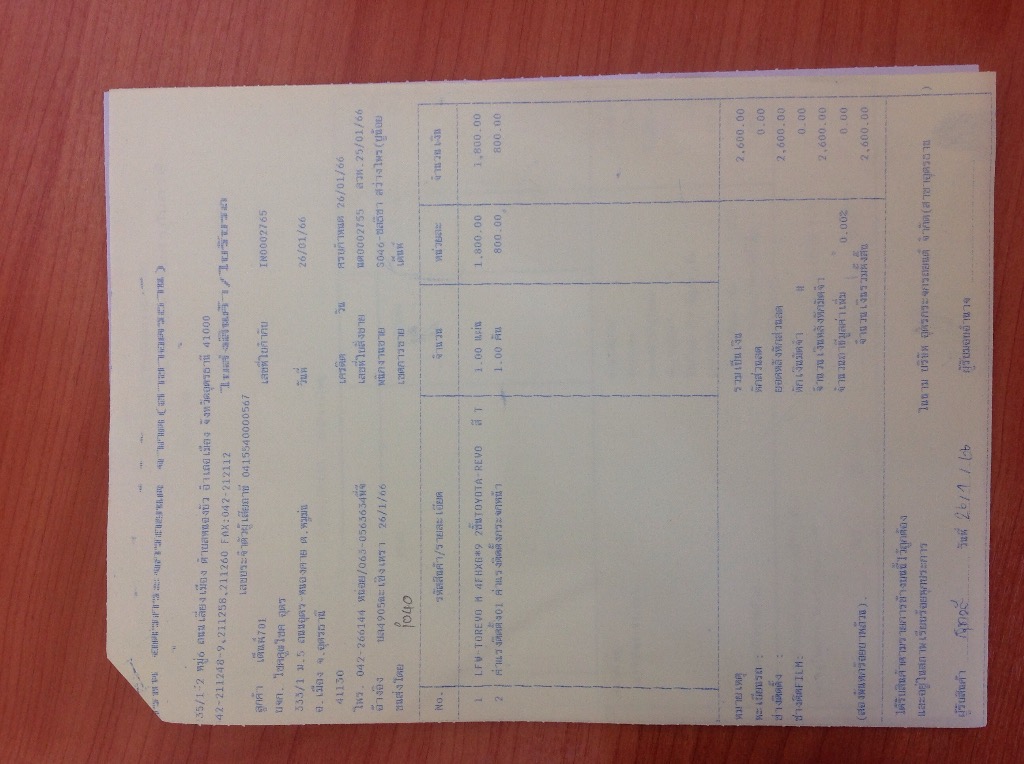 35/1-2 หมู่6 ถนนเลี่ยงเมือง ตำบลหนองบัว อำเภอเมือง จังหวัดอุดรธานี 41000
42-211248-9,211258,211260 FAX:042-212112 ใบส่งสินค้า/ใบรับรถ
เลขประจำตัวผู้เสียภาษี 0415540000567
ลูกค้า เต็นท์701 เลขที่ใบกำกับ IN0002765
บจก. โชคคูนโชค อุดร
333/1 ม.5 ถนนอุดร-หนองคาย ต.หมูม่น วันที่ 26/01/66
อ.เมือง จ.อุดรธานี
41130 เครดิต วัน ครบกำหนด 26/01/66
โทร. 042-266144 หน่อย/065-0563634พี่จี เลขที่ใบสั่งขาย 0002755 สวพ.25/01/66
อ้างอิง 4905ฉะเชิงเทรา 26/1/66 พนักงานขาย
ขนส่งโดย เขตการขาย เต็นท์
โอ๋40
No. รหัสสินค้า/รายละเอียด จำนวน หน่วยละ จำนวนเงิน
1 LFW-TOREVO M 4FHXB*9 2ชั้นTOYOTA-REVO สี 1 1.00 แผ่น 1,800.00 1,800.00
2 ค่าแรงติดตั้ง01 ค่าแรงติดตั้งกระจกหน้า 1.00 คัน 800.00 800.00
หมายเหตุ รวมเป็นเงิน 2,600.00
ทะเบียนรถ : หักส่วนลด 0.00
ช่างติดตั้ง : ยอดหลังหักส่วนลด 2,600.00
ช่างติดFILM: หักเงินมัดจำ 0.00
จำนวนเงินหลังหักมัดจำ 2,600.00
จำนวนภาษีมูลค่าเพิ่ม 0.00% 0.00
(สองพันหกร้อยบาทถ้วน). จำนวนเงินรวมทั้งสิ้น 2,600.00
ได้รับสินค้าตามรายการข้างบนนี้ไว้ถูกต้อง ในนาม บริษัท อุดรกระจกรถยนต์ จำกัด(สาขาอุดรธานี)
และอยู่ในสภาพเรียบร้อยทุกประการ
ผู้รับสินค้า วันที่ 26/1/66 ผู้รับมอบอำนาจ